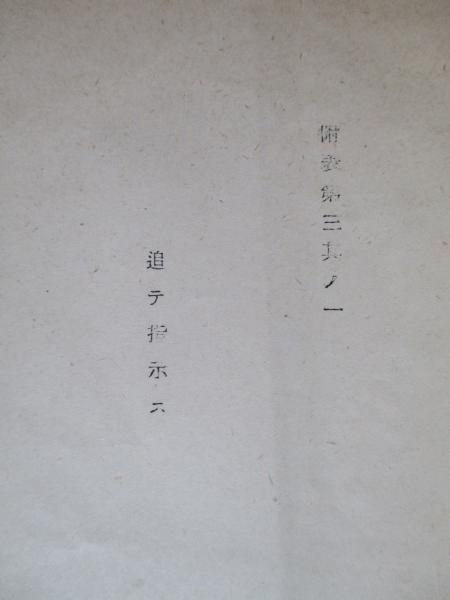 備表第三其ノ一
追テ指示ス